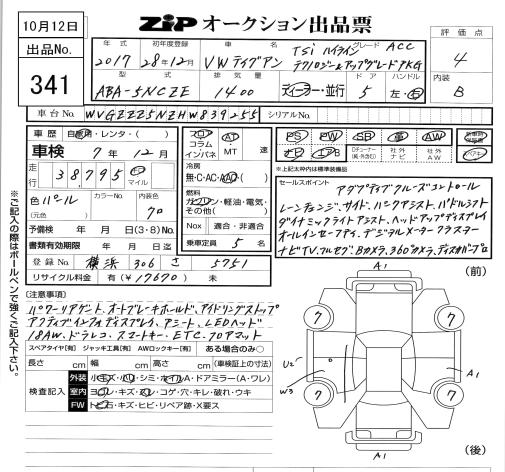 10月12日
ZIP オークション出品票
出品No.
341
年式 初年度登録 車名 グレード
2017 28年12月 VWティグアン TSi ハイライン ACC テクノロジー&アップグレードPKG
型式 排気量 ドア ハンドル
ABA-5NCZE 1400 ディーラー・並行 5 左・右
評価点
4
内装
B
車台No. WVGZZZ5NZHW839255 シリアルNo.
車歴 自家用・レンタ・( )
車検 7年12月
走行 38,795 km マイル
色 パール カラーNo. 内装色 クロ
(元色)
予備検 年 月 日(3・8)No.
書類有効期限 年 月 日迄
登録No. 横浜 306 さ 5751
リサイクル料金 有(¥17670) 未
フロア コラム インパネ AT・MT 速
冷房
無・C・AC・AAC・( )
燃料
ガソリン・軽油・電気・その他( )
Nox 適合・非適合
乗車定員 5 名
PS PW SR 革 AW
ナビ エアB Dチューナー(純・外含む) 社外ナビ 社外AW
*上記太枠内は標準装備品
セールスポイント アダプティブクルーズコントロール
レーンチェンジ、サイド、パークアシスト、パドルシフト
ダイナミックライトアシスト、ヘッドアップディスプレイ
オールインセーフティ、デジタルメータークラスター
ナビTV、フルセグ、Bカメラ、360°カメラ、ディスカバープロ
(注意事項)
パワーリアゲート、オートブレーキホールド、アイドリングストップ
アクティブインフォディスプレイ、Aシート、LEDヘッド
18AW、ドラレコ、スマートキー、ETC、フロアマット
スペアタイヤ[有] ジャッキ工具[有] AWロックキー[有] ある場合のみ○
長さ cm 幅 cm 高さ cm (車検証上の寸法)
検査記入
外装 小キズ・小凹・シミ・ホイルA・ドアミラー(A・ワレ)
室内 スレ・キズ・シミ・コゲ・穴・キレ・破れ・ウキ
FW トビ石・キズ・ヒビ・リペア跡・X要ス
(前)
A1
7 7
U2
W3
A1
7 7
A1
(後)
※ご記入の際はボールペンで強くご記入下さい。